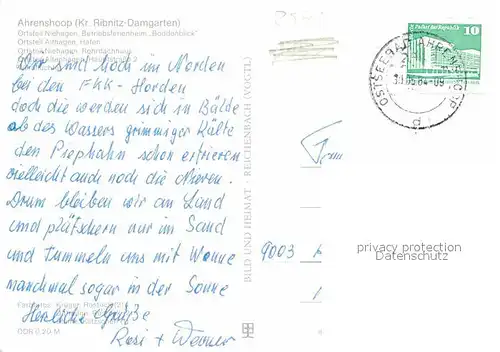 Ahrenshoop (Kr. Ribnitz-Damgarten)
Ortsteil Niehagen, Betriebsferienheim „Boddenblick"
Ortsteil Althagen, Hafen
Ortsteil Niehagen, Rohrdachhaus
Wir sind hoch im Norden
bei den FKK-Horden
doch die werden sich in Bälde
ob des Wassers grimmiger Kälte
den Piephahn schon erfrieren
vielleicht auch noch die Nieren.
Drum bleiben wir an Land
und plätschern nur im Sand
und tummeln uns mit Wonne
manchmal sogar in der Sonne
Herzliche Grüße
Rosi + Werner
DDR 0,20 M
BILD UND HEIMAT · REICHENBACH (VOGTL)
10
OSTSEEBAD AHRENSHOOP
84-09
9003
privacy protection
Datenschutz